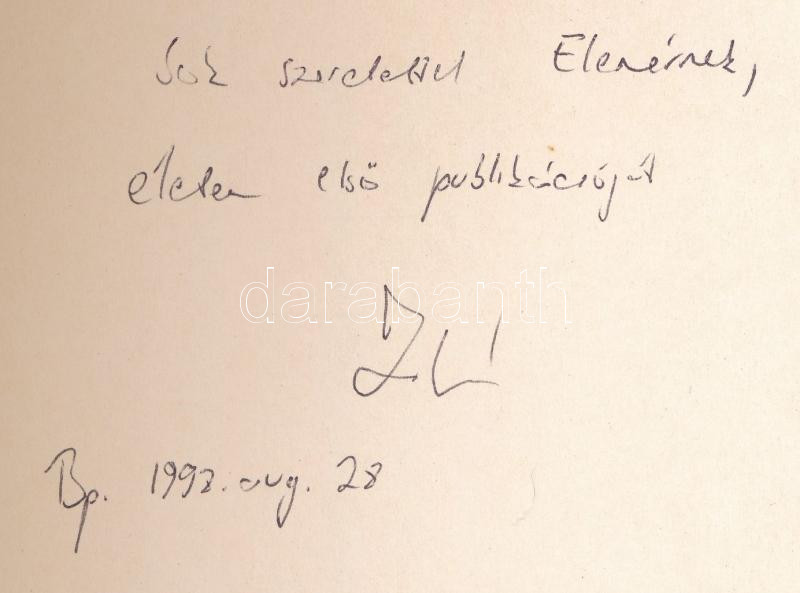 Sok szeretettel Elenérnek,
életem első publikációját
darabanth
Bp. 1992. aug. 28